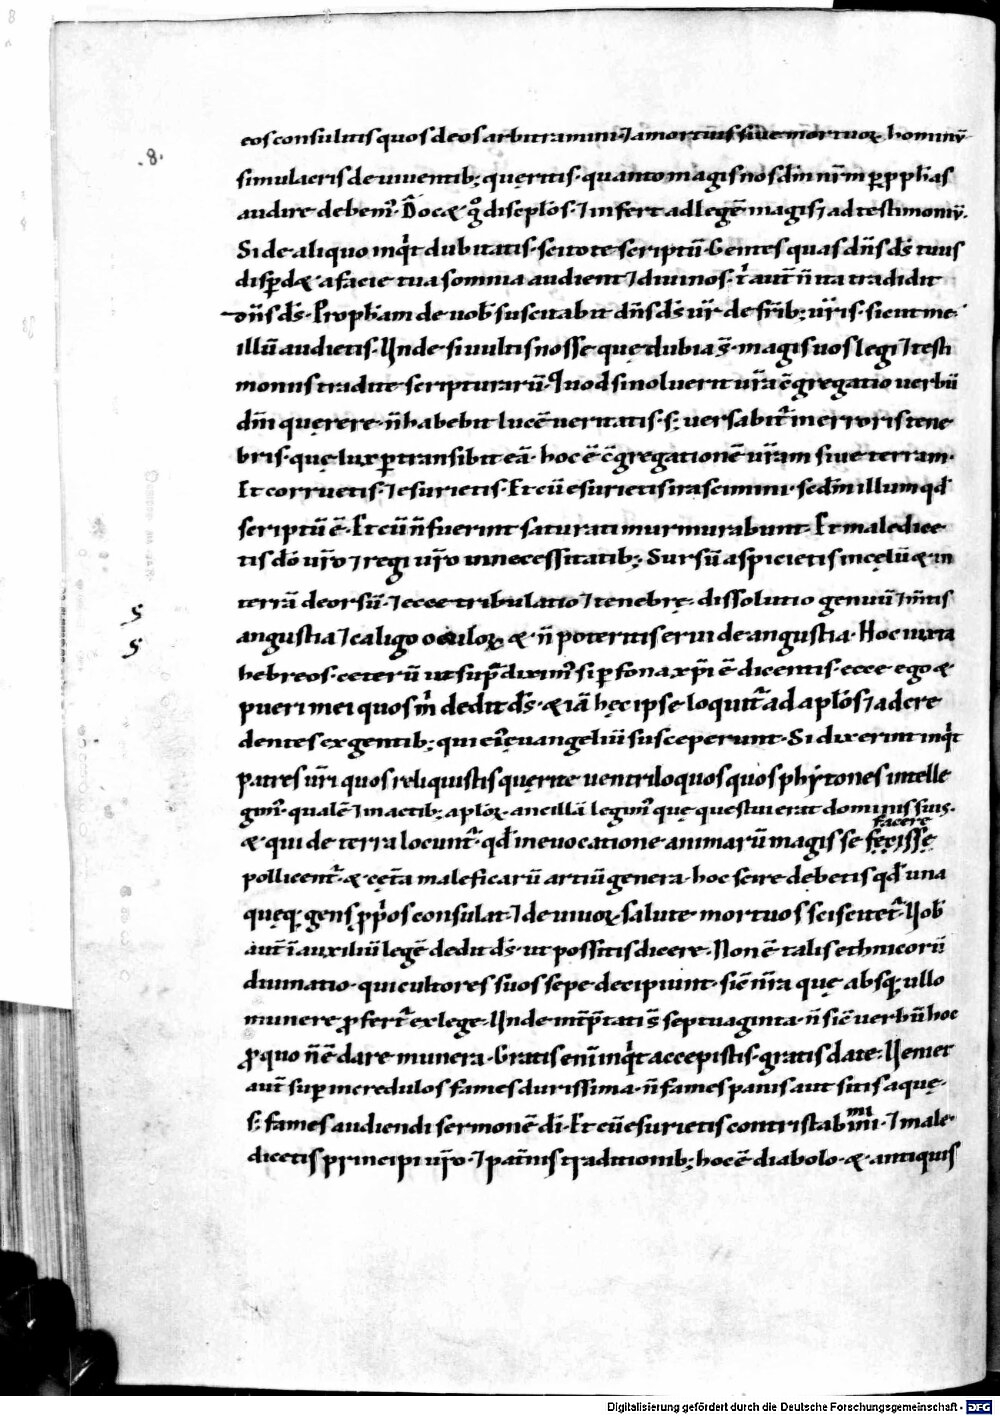 .8.
eos consulitis quos deos arbitramini ⁊ amortuis siue mortuoꝝ hominū
simulacris de uiuentib; quęritis· quanto magis nos dn̄m nr̄m ꝑ ꝓph̄as
audire debem᾽· Docet q°q; discipl'os· ⁊ infert ad legē magis ⁊ ad testimoniū·
Si de aliquo inqt dubitatis· scitote scriptū· Gentes quas dn̄s ds̄ tuus
disꝑdet a facie tua somnia audient ⁊ diuinos· t' aut̄ n̄ ita tradidit
dn̄s ds̄· Proph̄am de uob' suscitabit dn̄s ds̄ ur̄ de fr̄ib; ur̄is· sicut me·
illū audietis· Unde si uultis nosse quę dubia s̄· magis uos legi ⁊ testi
moniis tradite scripturarū· Quod si noluerit ur̄a c̄gregatio uerbū
dn̄i quęrere· n̄ habebit lucē ueritatis· s; uersabit᾽ in erroris tene
bris· quę lux ꝑtransibit eā· hoc ē c̄gregationē ur̄am siue terram·
Et corruetis· ⁊ esurietis· Et cū esurietis irascimini· sed in illum qd̄
scriptū ē· Et cū n̄ fuerint saturati murmurabunt· Et maledice
tis dō ur̄o ⁊ regi ur̄o in necessitatib; Sursū aspicietis in cęlū et in
terrā deorsū· ⁊ ecce tribulatio ⁊ tenebrę· dissolutio genuū ⁊ m̄tis
angustia ⁊ caligo oculoꝝ et n̄ poteritis erui de angustia· Hoc iuxta
hebreos· ceterū ut supͣ diximꝰ si ꝑsona xp̄i ē dicentis· ecce ego et
pueri mei quos m̊ dedit ds̄· et iā hęc ipse loquit᾽ ad apl'os ⁊ ad cre
dentes ex gentib; qui ei᾽ euangeliū susceperunt· Si dixerint inqt
patres ur̄i quos reliquistis quęrite uentriloquos quos phytones intelle
gimꝰ· qualē ⁊ in actib; apl'oꝝ ancillā legimꝰ quę questui erat dominis suis·
facere
et qui de terra locunt᾽· qd̄ in euocatione animarū magi se fecisse
pollicent᾽· et cęt̄a maleficarū artiū genera· hoc scire debetis qd̄ una
quęq; gens ꝓp̄os consulat· ⁊ de uiuoꝝ salute mortuos sciscitet᾽· Uob'
aut̄ ī auxiliū legē dedit ds̄· ut possitis dicere· Non ē talis ethnicorū
diuinatio· qui cultores suos sepe decipiunt· sic̄ nr̄a quę absq; ullo
munere ꝓfert᾽ ex lege· Unde int̄p̄tati s̄ septuaginta· n̄ sic̄ uerbū hoc
ꝓ quo n̄ ē dare munera· Gratis enī inqt accepistis· gratis date· Ueniet
aut̄ suꝑ incredulos fames durissima· n̄ fames panis aut sitis aquę·
s; fames audiendi sermonē dī· Et cū esurietis contristabimini· ⁊ male
dicetis principi ur̄o· ⁊ pat̄nis traditionib; hoc ē diabolo· et antiquis
Digitalisierung gefördert durch die Deutsche Forschungsgemeinschaft - DFG